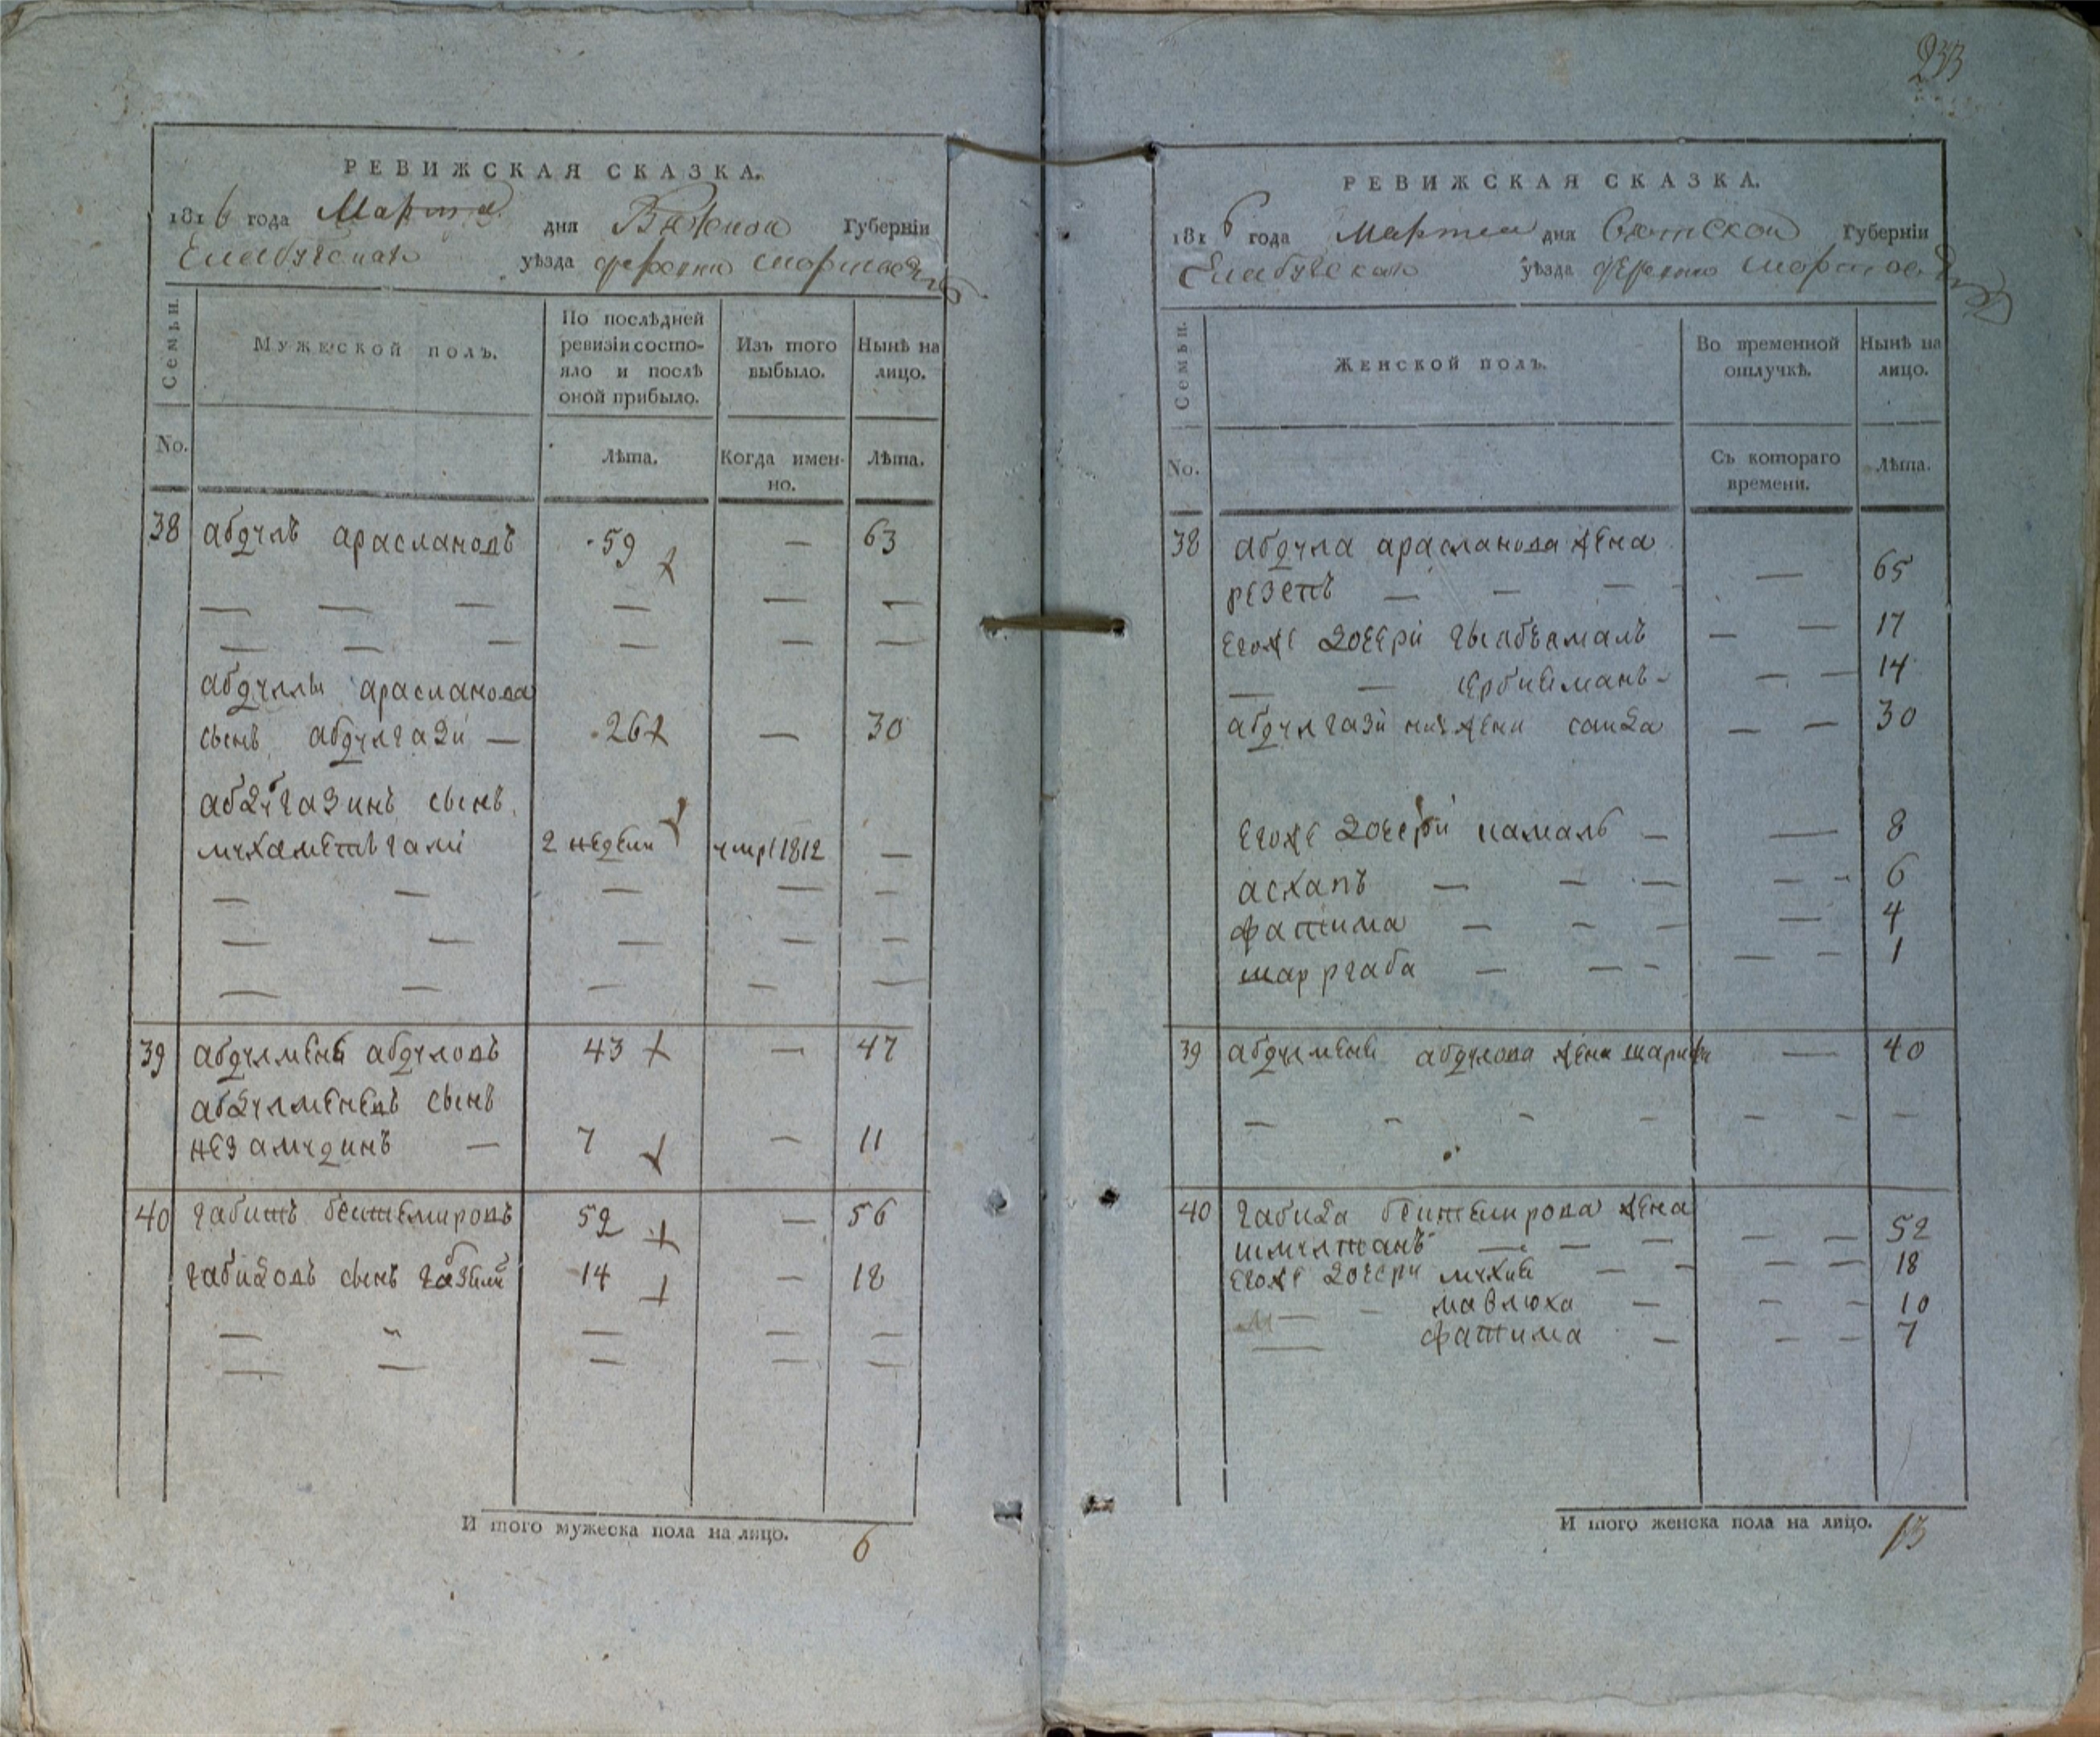 233
РЕВИЖСКАЯ СКАЗКА.
1816 года Марта дня Вятской Губерніи
Елабугской уѣзда деревни
Семьи.
Мужеской полъ.
По послѣдней ревизіи состояло и послѣ оной прибыло.
Изъ того выбыло.
Нынѣ на лицо.
No.
Лѣта.
Когда именно.
Лѣта.
38 абдулъ араслановъ 59 — 63
— — — — — —
— — — — — —
абдуллы арасланова
сынъ абдулгази — 26 — 30
абдулгазинъ сынъ
мухаметьгали 2 недели умре 1812 —
— — — — —
— — — — —
— — — — —
39 абдулменей абдуловъ 43 — 47
абдулменевъ сынъ
незамудинъ — 7 — 11
40 габитъ бектемировъ 52 — 56
габидовъ сынъ 14 — 18
— — — — —
— — — — —
И того мужеска пола на лицо. 6
РЕВИЖСКАЯ СКАЗКА.
1816 года Марта дня Вятской Губерніи
Елабугской уѣзда деревни
Семьи.
Женской полъ.
Во временной отлучкѣ.
Нынѣ на лицо.
No.
Съ котораго времени.
Лѣта.
38 абдула арасланова жена
— — — — 65
егоже дочери — — 17
— — — — 14
абдулгази жена саида — — 30
егоже дочери камаль — — 8
асхапъ — — — — - 6
фатима — — — — 4
— — - — — 1
39 абдулменея абдулова жена — 40
— - - - — - —
40 габида бектемирова жена
— — — — — 52
егоже дочери — - — — 18
— - мавлюха — — — 10
— фатима — - — 7
И того женска пола на лицо. 13